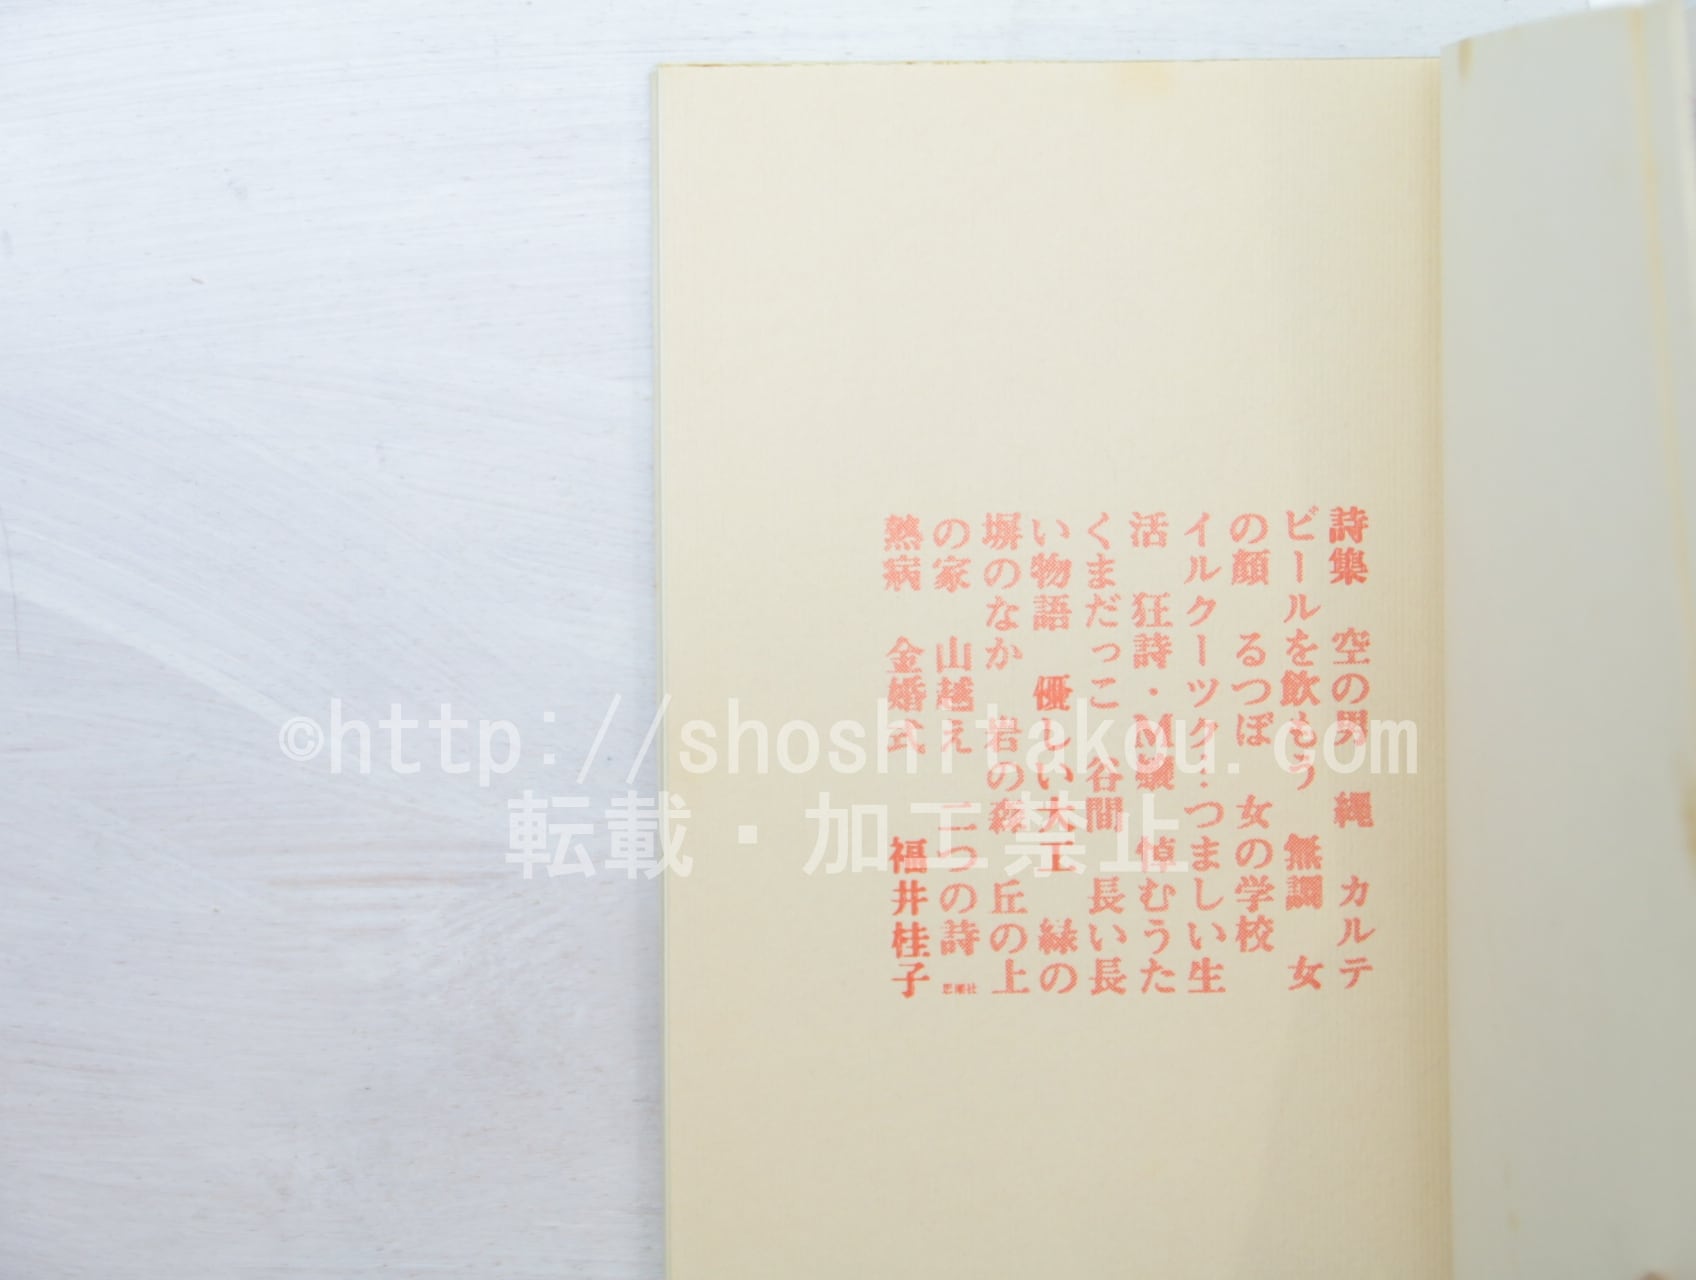 詩集　空の男　縄　カルテ
ビールを飲もう　無調　女
の顔　るつぼ　女の学校
イルクーツク：つましい生
活　狂詩・M　悼むうた
くまだっこ　谷間　長い長
い物語　優しい大工　緑の
塀のなか　岩の　丘の上
の家　山越え　二つの詩
思潮社
熱病　金婚式　福井桂子
©http://shoshitakou.com
転載・加工禁止